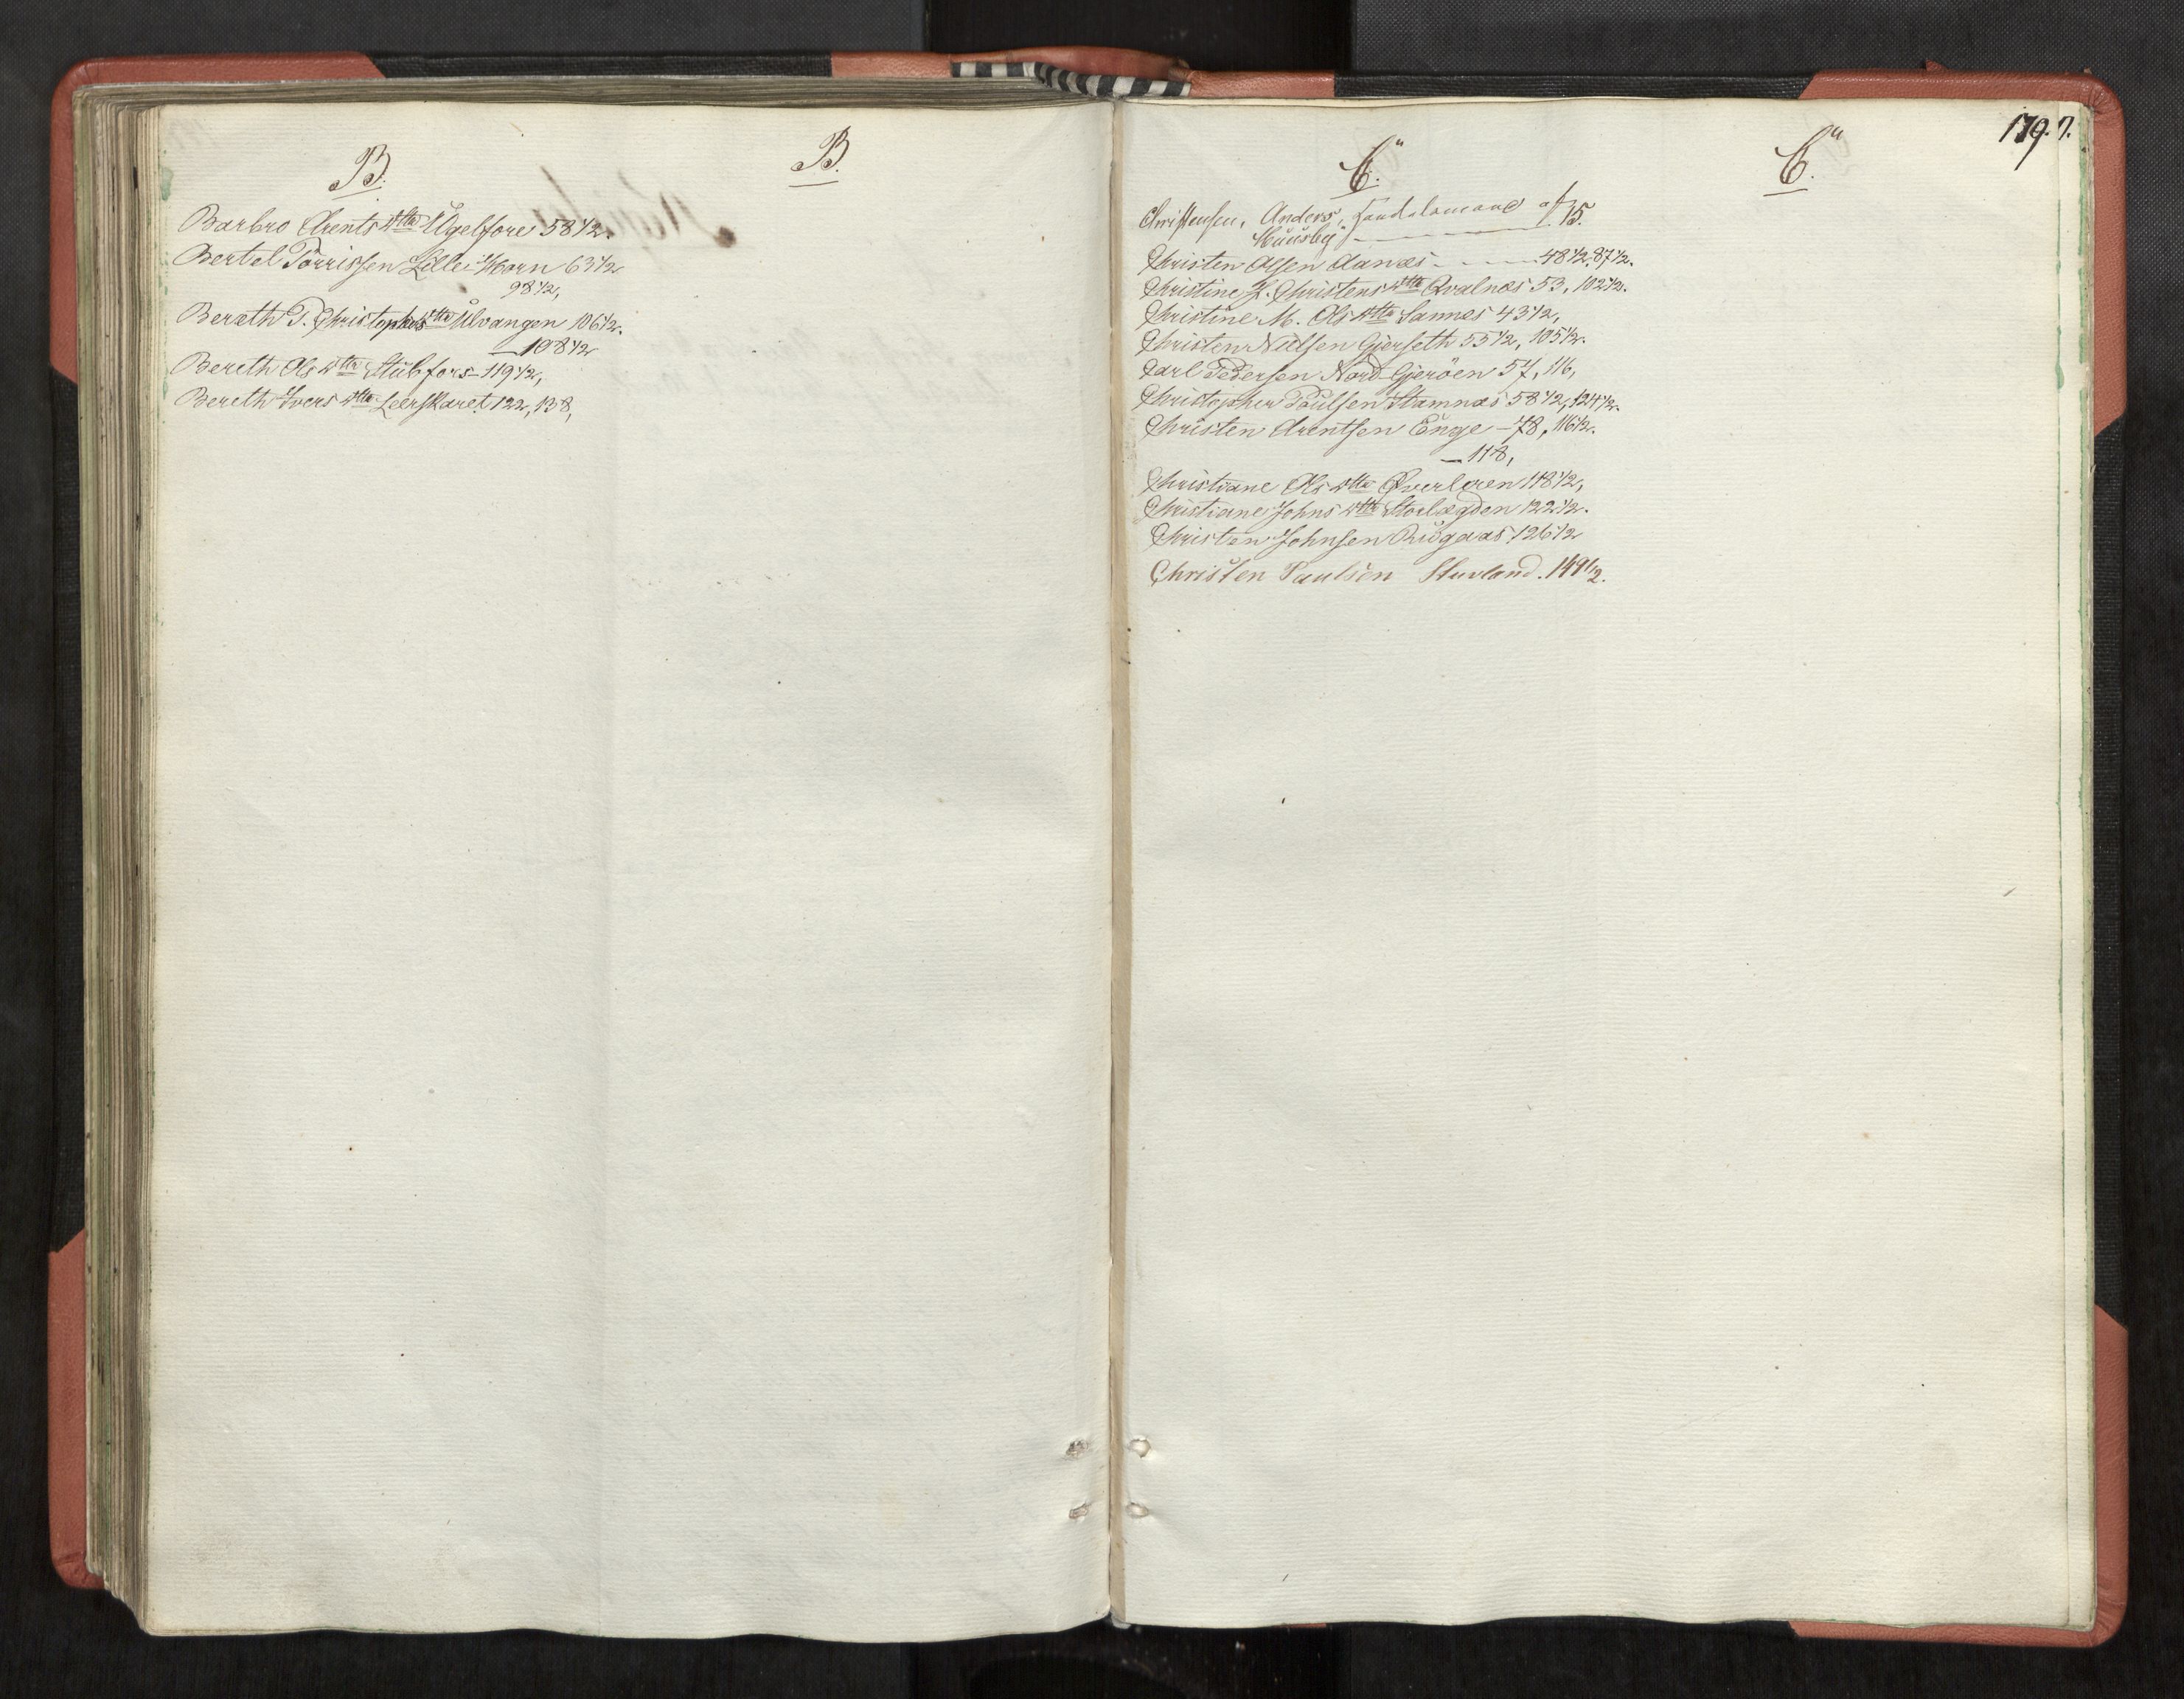 B.
B.
Barbro Arents Dtta Ugelfore 58 1/2.
Bertel Torrissen Lille-Horn 63 1/2
98 1/2,
Berethe P. Christophers Dtta Ulvangen 106 1/2.
108 1/2
Bereth Ols Dtta Stubfors 119 1/2,
Bereth Ivers Dtta Leerskaret 122, 138,
C.
C.
179. 7.
Christensen, Anders, af
Huusby 15.
Christen Olsen Aanæs 48 1/2. 87 1/2.
Christine J. Christens Dtta Qvalnæs 53, 102 1/2.
Christine M. Ols Dtta Sannes 43 1/2,
Christen Nielsen Gjerseth 55 1/2, 105 1/2.
Carl Pedersen Nord-Gjeröen 57, 116,
Christopher Paulsen Stamnæs 58 1/2, 124 1/2.
Christen Arentsen Enge 78, 116 1/2.
118,
Christiane Ols Dtta Øverleren 118 1/2,
Christiane Johns Dtta Storlægden 122 1/2.
Christen Johnsen Riisgaas 126 1/2
Christen Paulsen Stuvland. 149 1/2.